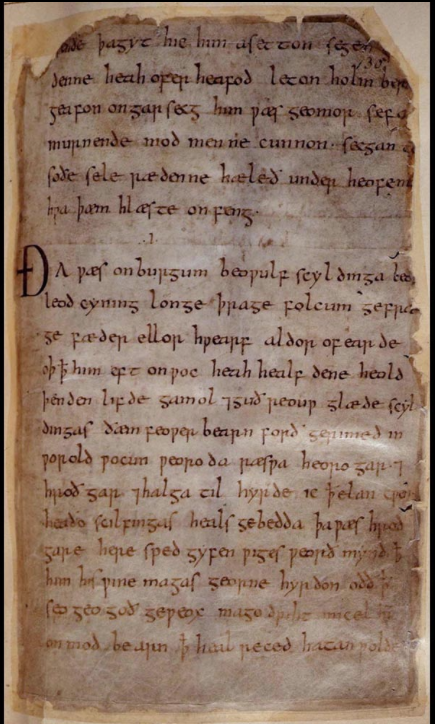 þa gyt hie him asetton segen
denne heah ofer heafod leton holm
geafon on garsecg him ƿæs geomor sefa
murnende mod men ne cunnon · secgan
soðe sele rædenne hæleð under heofenu
hƿa þæm hlæste onfeng ·
.I.
ÐA ƿæs on burgum beoƿulf scyldinga
leod cyning longe þrage folcum gefræ
ge fæder ellor hƿearf aldor of earde
oþ ꝥ him eft onƿoc heah healfdene heold
þenden lifde gamol ⁊ guð reouƿ glæde scyl
dingas ðæm feoƿer bearn forð gerimed in
ƿorold ƿocun ƿeoroda ræsƿa heorogar ⁊
hroðgar ⁊ halga til hyrde ic ꝥ elan cƿen
heaðo scilfingas heals gebedda þa ƿæs hroð
gare here sped gyfen ƿiges ƿeorð mynd ꝥ
him his ƿine magas georne hyrdon oðð ꝥ
seo geogoð geƿeox mago driht micel him
on mod bearn ꝥ heal reced hatan ƿolde